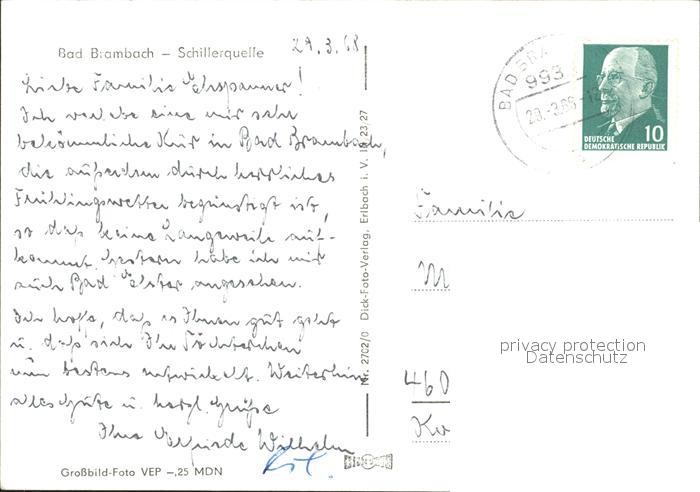 29.3.68
Bad Brambach – Schillerquelle
Liebe Familie
Ich verlebe eine mir sehr
bekömmliche Kur in Bad Brambach,
die außerdem durch herrliches
Frühlingswetter begünstigt ist,
so daß keine Langeweile auf-
kommt. Gestern habe ich mir
auch Bad Elster angesehen.
Ich hoffe, daß es Ihnen gut geht
u. daß sich Ihr Töchterchen
am besten entwickelt. Weiterhin
alles Gute u. herzl. Grüße
Ihre Wilhelm
Großbild-Foto VEP –,25 MDN
Nr. 2702/0 Dick-Foto-Verlag, Erlbach i. V. III 23 27
BAD BRA
993
10
DEUTSCHE
DEMOKRATISCHE REPUBLIK
Familie
M
460
privacy protection
Datenschutz